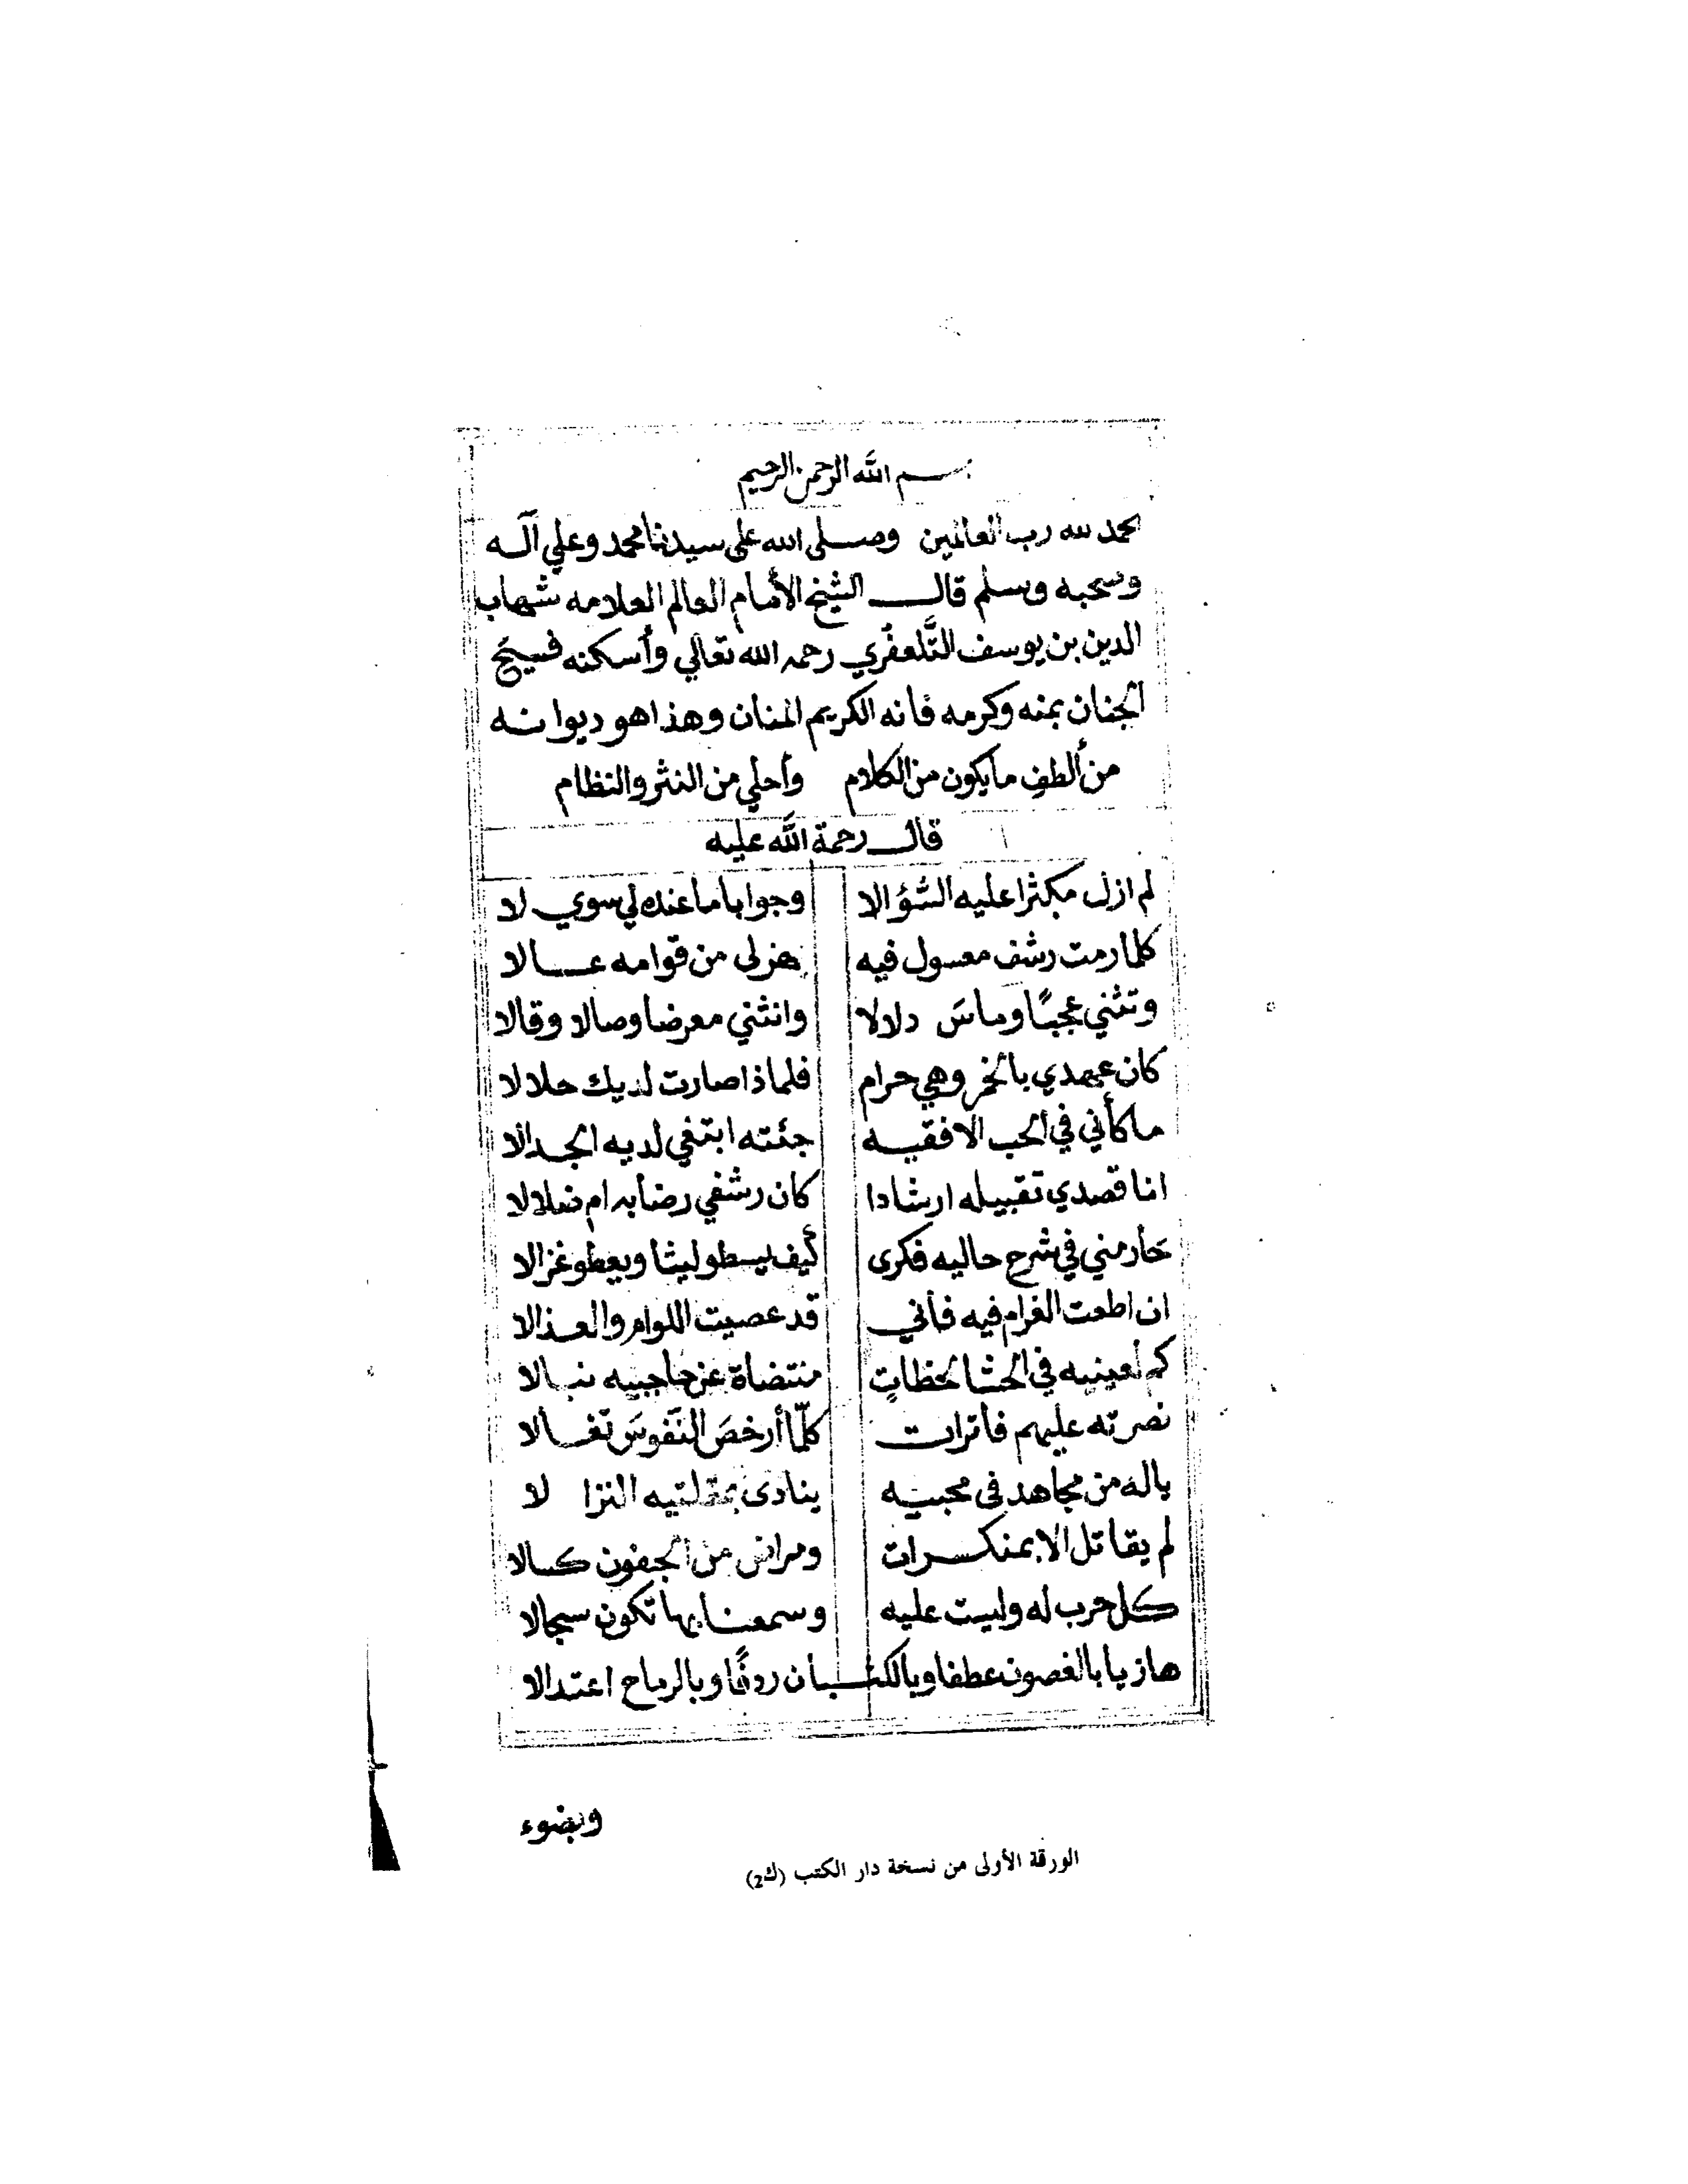 بسم الله الرحمن الرحيم
الحمد لله رب العالمين وصلى الله على سيدنا محمد وعلي آله
وصحبه وسلم قال الشيخ الأمام العالم العلامه شهاب
الدين بن يوسف التَّلعفري رحمه الله تعالي وأسكنه فسيح
الجنان بمنه وكرمه فانه الكريم المنان وهذا هو ديوانه
من ألطف ما يكون من الكلام وأحلي من النثر والنظام
قال رحمة الله عليه
لم ازل مكثرا عليه السُّؤالا وجوابا ما عنده لي سوي لا
كلما رمت رشف معسول فيه هز لى من قوامه عسالا
وتثني عجبًا وماسَ دلالا وانثني معرضا وصالا وقالا
كان عهدي بالخمر وهي حرام فلماذا صارت لديك حلالا
ما كأني في الحب الا فقيه جئته ابتغي لديه الجدالا
انا قصدي تقبيله ارشادا كان رشفي رضابه ام ضلالا
حار مني في شرح حاليه فكرى كيف يسطو ليثا ويعطو غزالا
ان اطعت الغرام فيه فأني قد عصيت اللوام والعذالا
كم لعينيه في الحشا لحظاتٍ منتضاة عن حاجبيه نبالا
نصرته عليهم فاترات كلّما أرخصَ النفوسَ تغالا
ياله من مجاهد فى محبيه ينادى بمقلتيه النزا لا
لم يقاتل الا بمنكسرات ومراض من الجفون كسالا
كل حرب له وليست عليه وسمعنا بها تكون سجالا
هازيا بالغصون عطفا وبالكثبان ردفًا وبالرماح اعتدالا
وبضوء
الورقة الأولى من نسخة دار الكتب (ك2)